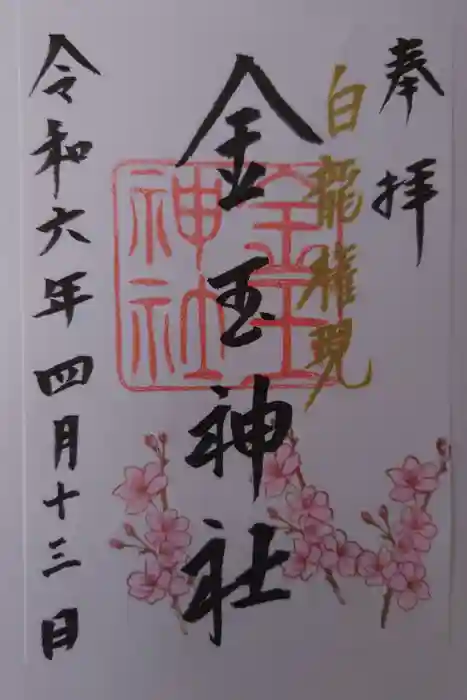 奉拝
白龍権現
金玉神社
金玉神社
令和六年四月十三日